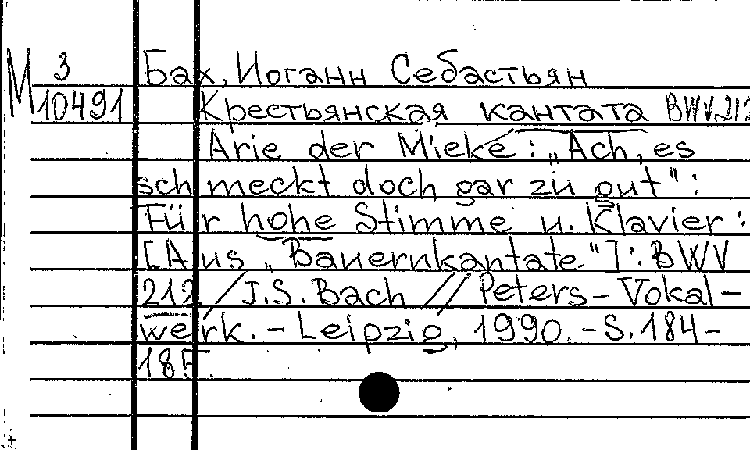 М 3
10491
Бах, Иоганн Себастьян
Крестьянская кантата BWV 212
Arie der Mieke: „Ach, es
schmeckt doch gar zu gut":
Für hohe Stimme u. Klavier:
[Aus „Bauernkantate"]: BWV
212 / J.S. Bach // Peters-Vokal-
werk. - Leipzig, 1990. - S. 184-
185.